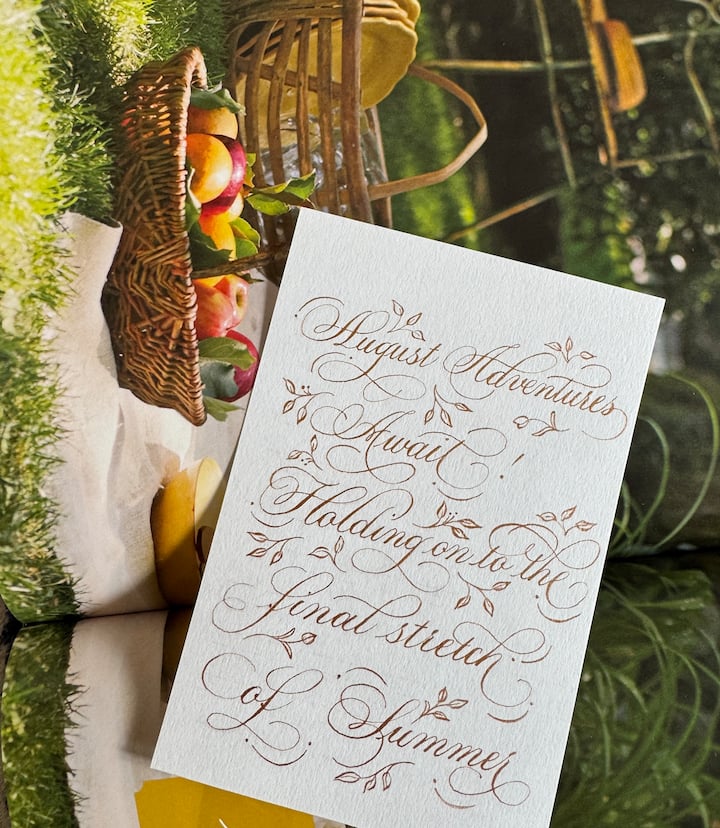 August Adventures
Await!
Holding on to the
final stretch
of Summer